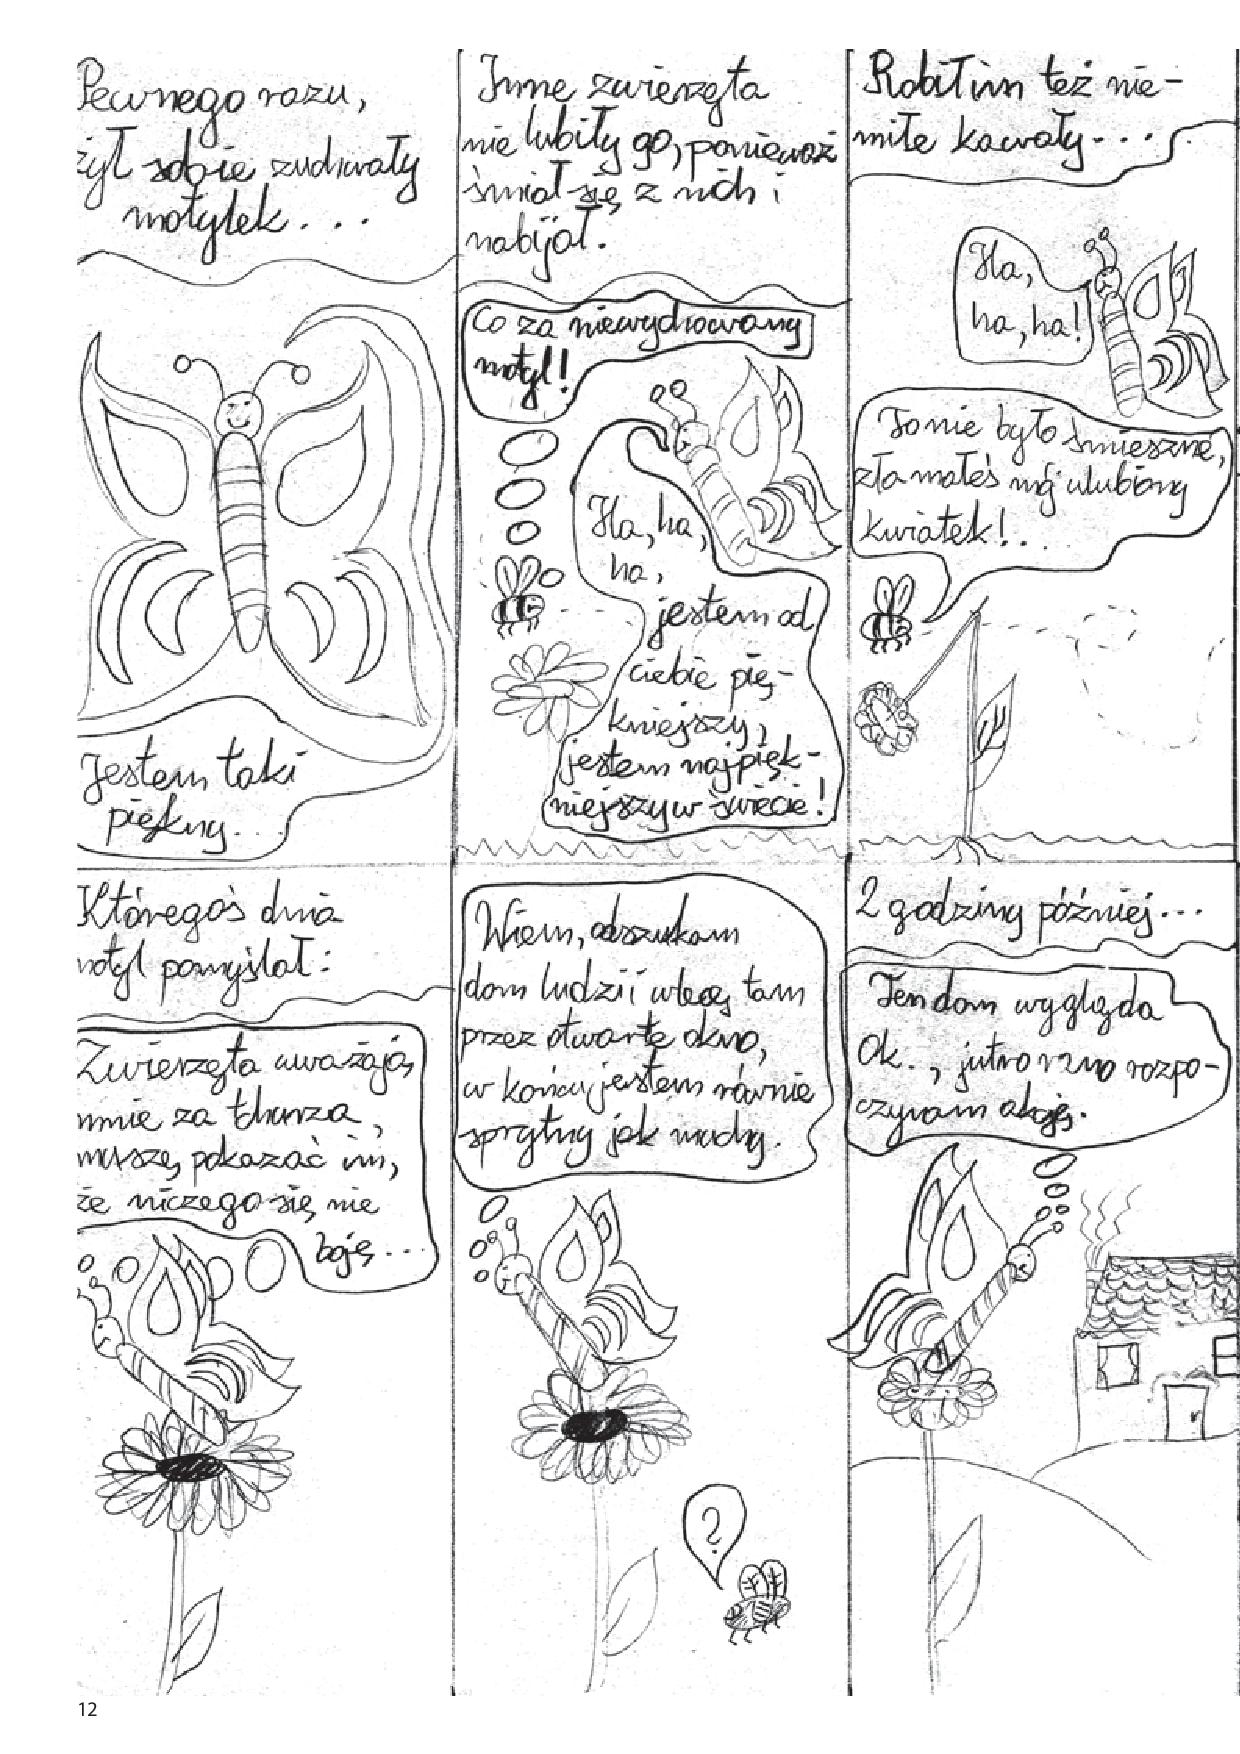 Pewnego razu,
żył sobie zuchwały
motylek...
Jestem taki
piękny...
Inne zwierzęta
nie lubiły go, ponieważ
śmiał się z nich i
nabijał.
Co za niewychowany
motyl!
Ha, ha,
ha,
jestem od
ciebie pię-
kniejszy,
jestem najpięk-
niejszy w świecie!
Robił im też nie-
miłe kawały...
Ha,
ha, ha!
To nie było śmieszne,
złamałeś mój ulubiony
kwiatek!..
Któregoś dnia
motyl pomyślał:
Zwierzęta uważają
mnie za tchurza,
muszę pokazać im,
że niczego się nie
boję...
Wiem, odszukam
dom ludzi i wlecę tam
przez otwarte okno,
w końcu jestem równie
sprytny jak muchy.
?
2 godziny później...
Ten dom wygląda
Ok., jutro rano rozpo-
czynam akcję.
12